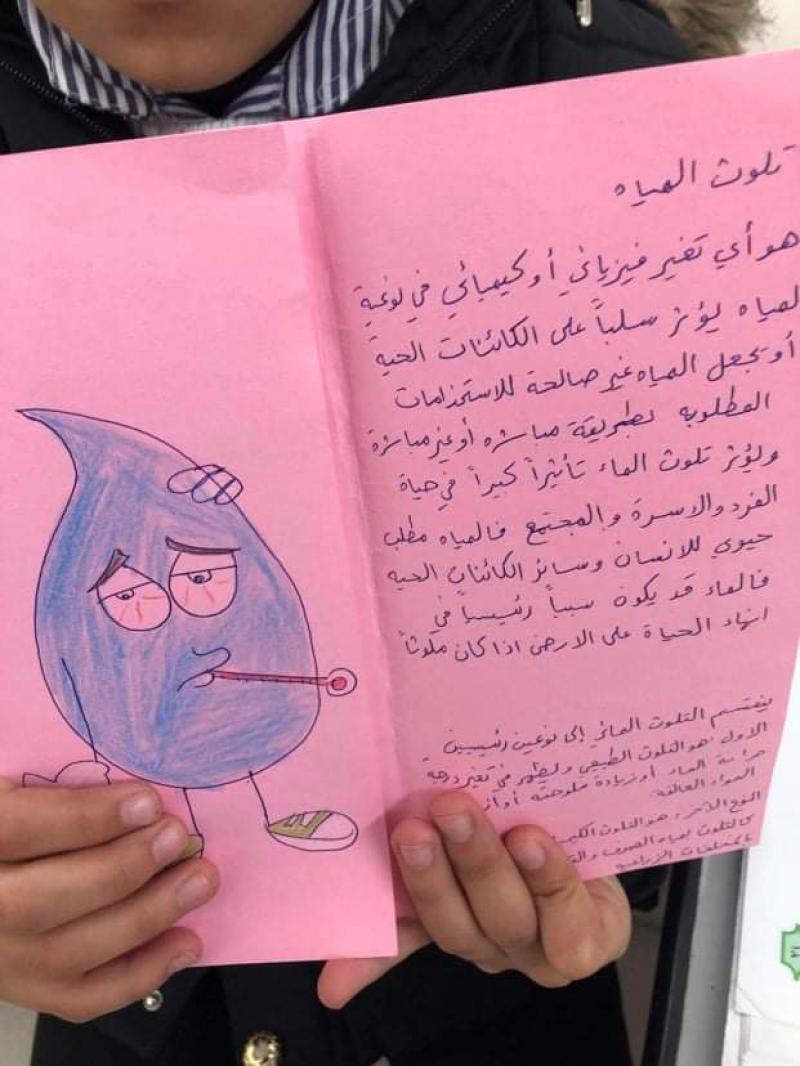 تلوث المياه
هو أي تغير فيزيائي أو كيميائي في نوعية
المياه يؤثر سلباً على الكائنات الحية
أو تجعل المياه غير صالحة للاستخدامات
المطلوبه بطريقة مباشره أو غير مباشرة
ويؤثر تلوث الماء تأثيراً كبيراً في حياة
الفرد والاسرة والمجتمع فالمياه مطلب
حيوي للانسان وسائر الكائنات الحيه
فالماء قد يكون سبباً رئيسياً في
انهاء الحياة على الارض اذا كان ملوثاً
ينقسم التلوث المائي إلى نوعين رئيسيين
الاول هو التلوث الطبيعي ويظهر في تغير درجة
حرارة الماء أو زيادة ملوحته أو
المواد العالقة
النوع الآخر هو التلوث
كالتلوث لمياه الصرف
المخلفات الزراعيه